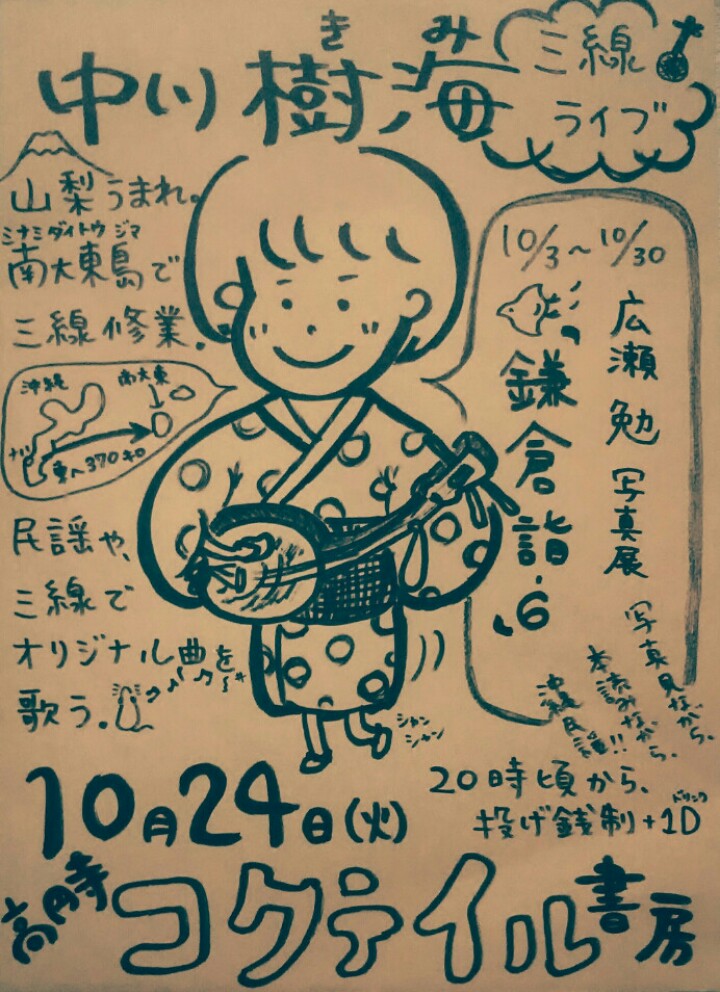 中川樹海
きみ
三線
ライブ
山梨うまれ。
ミナミダイトウジマ
南大東島で
三線修業。
沖縄
南大東
ナハ
東へ370キロ
民謡や、
三線で
オリジナル曲を
歌う。
10/3~10/30
広瀬勉写真展
鎌倉詣・6
写真見ながら、
本読みながら、
沖縄民謡!!
シャン
シャン
10月24日(火)
20時頃から、
投げ銭制+1D
ドリンク
高円寺
コクテイル書房